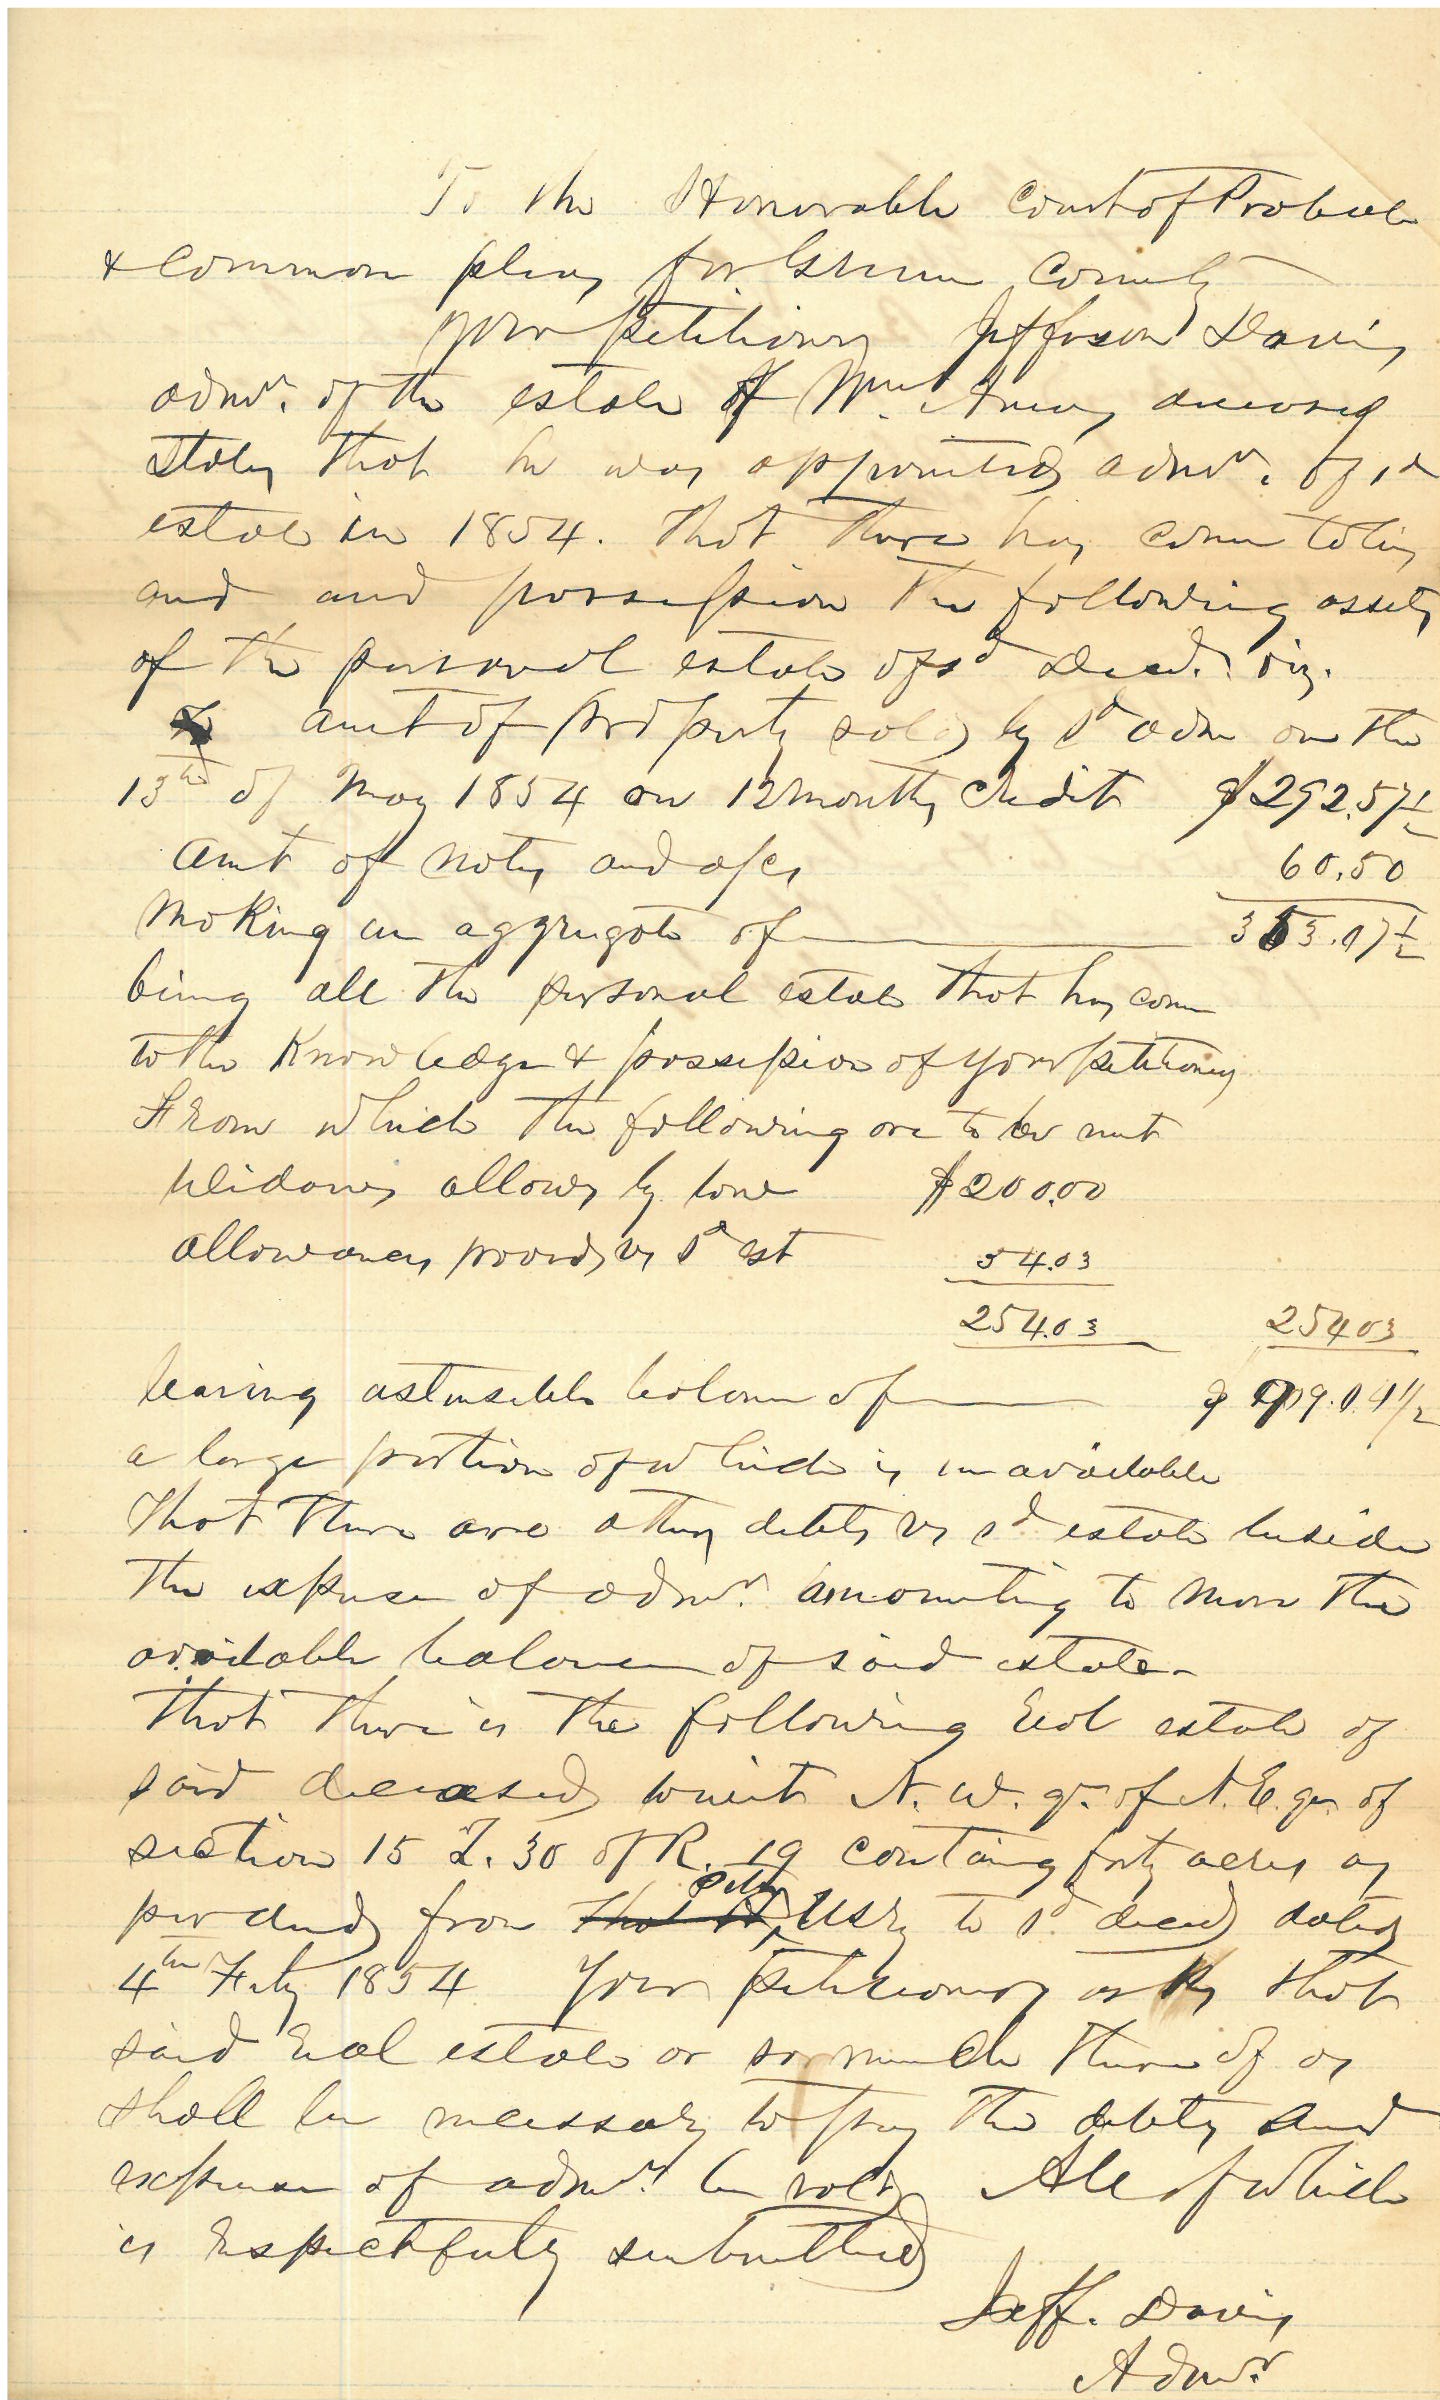 To the Honorable Court of Probate
& Common pleas for Greene County
Your petitioner Jefferson Davis
admr. of the estate of Wm. deceased
States that he was appointed admr. of sd
estate in 1854. That there has come to his
and and possession the following assets
of the personal estate of sd Decd. viz.
amt of property sold by sd adm on the
13th of May 1854 on 12 months Credit $292.57½
Amt of notes and a/cs 60.50
Making an aggregate of 353.07½
being all the personal estate that has come
to the Knowledge & possession of your petitioner
From which the following are to be met
Widows allows by law $200.00
allowances provd vs sd est 54.03
254.03 254 03
leaving ostensible balance of 04½
a large portion of which is unavailable
That there are other debts vs sd estate beside
the expense of admr. amounting to more the
available balance of said estate
That there is the following Real estate of
said deceased towit N. W. qr. of N. E. qr. of
section 15 T. 30 of R. 19 containg forty acres as
per deed from Usry to sd decd dated
4th Feby 1854 Your petitioner asks that
said Real estate or so much there of as
shall be necessary to pay the debts and
expense of admr. be sold All of which
is Respectfuly submitted
Jeff. Davis
Admr.